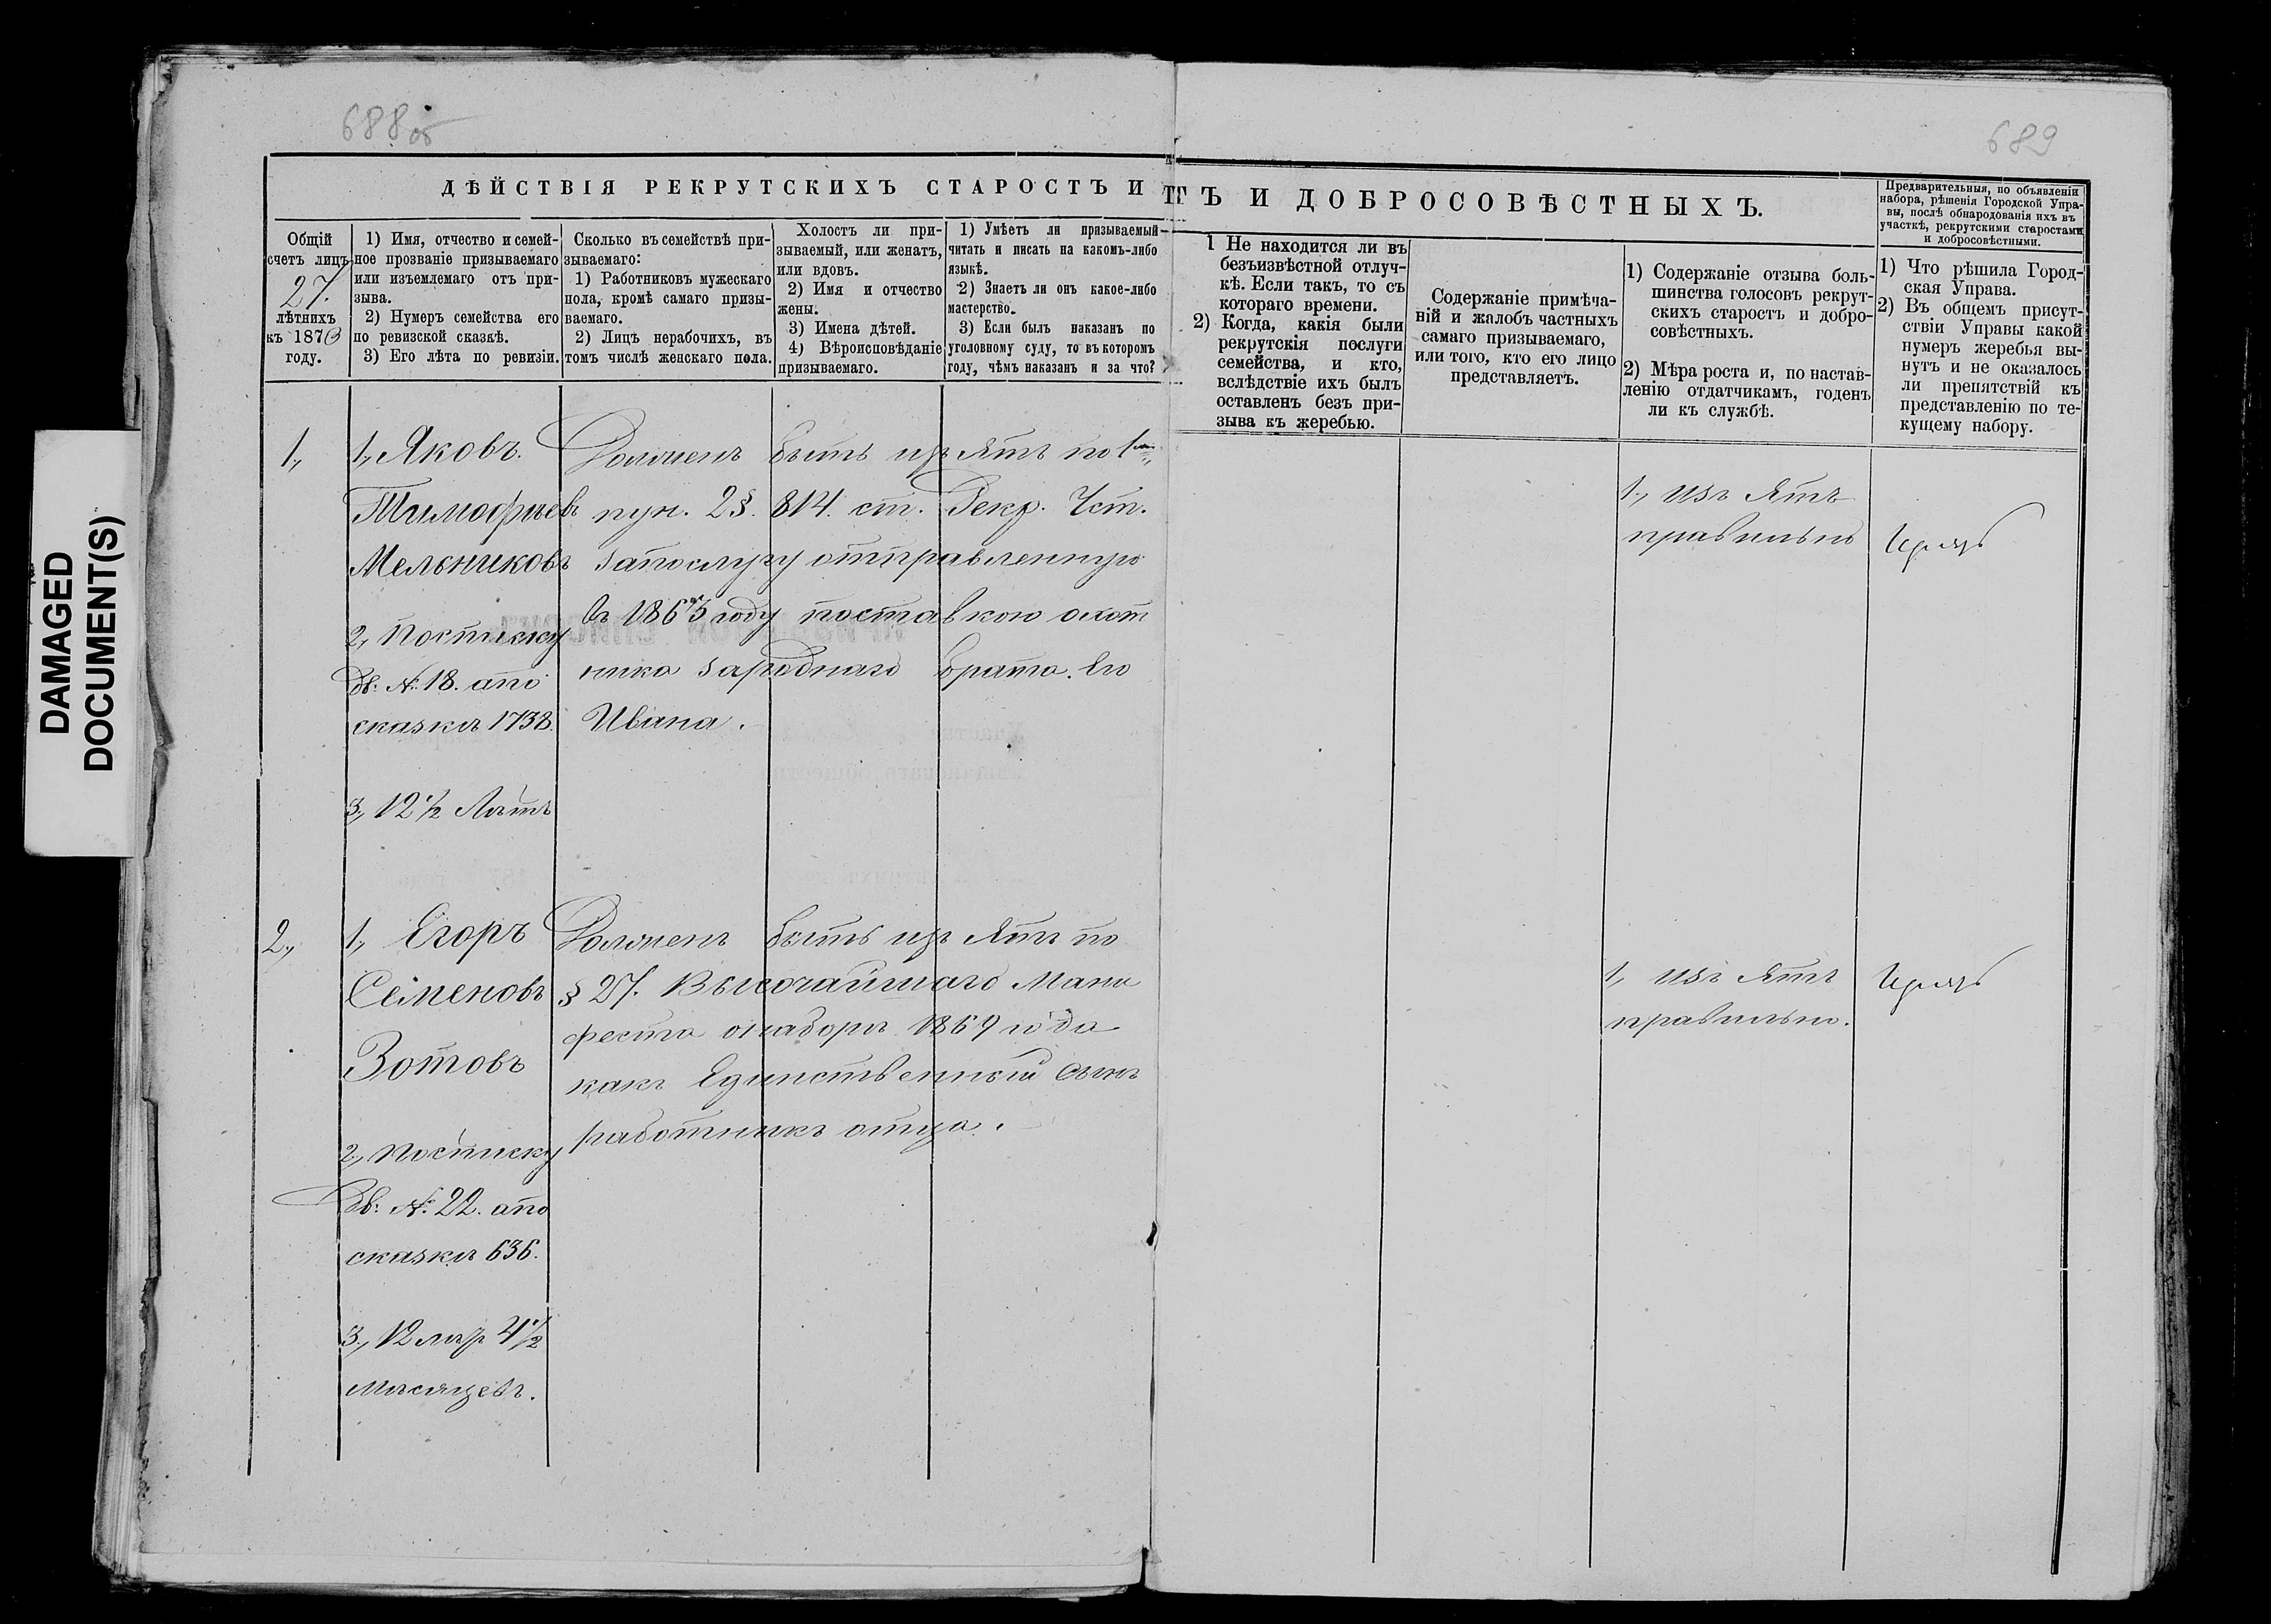 DAMAGED
DOCUMENT(S)
688 об
689
ДѢЙСТВІЯ РЕКРУТСКИХЪ СТАРОСТЪ И
ТЪ И ДОБРОСОВѢСТНЫХЪ.
Предварительныя, по объявленіи
набора, рѣшенія Городской Упра-
вы, послѣ обнародованія ихъ въ
участкѣ, рекрутскими старостами
и добросовѣстными.
Общій
счетъ лицъ
27.
лѣтнихъ
къ 1873
году.
1) Имя, отчество и семей-
ное прозваніе призываемаго
или изъемлемаго отъ при-
зыва.
2) Нумеръ семейства его
по ревизской сказкѣ.
3) Его лѣта по ревизіи.
Сколько въ семействѣ при-
зываемаго:
1) Работниковъ мужескаго
пола, кромѣ самаго призы-
ваемаго.
2) Лицъ нерабочихъ, въ
томъ числѣ женскаго пола.
Холостъ ли при-
зываемый, или женатъ,
или вдовъ.
2) Имя и отчество
жены.
3) Имена дѣтей.
4) Вѣроисповѣданіе
призываемаго.
1) Умѣетъ ли призываемый
читать и писать на какомъ-либо
языкѣ.
2) Знаетъ ли онъ какое-либо
мастерство.
3) Если былъ наказанъ по
уголовному суду, то въ которомъ
году, чѣмъ наказанъ и за что?
1 Не находится ли въ
безъизвѣстной отлуч-
кѣ. Если такъ, то съ
котораго времени.
2) Когда, какія были
рекрутскія послуги
семейства, и кто,
вслѣдствіе ихъ былъ
оставленъ безъ при-
зыва къ жеребью.
Содержаніе примѣча-
ній и жалобъ частныхъ
самаго призываемаго,
или того, кто его лицо
представляетъ.
1) Содержаніе отзыва боль-
шинства голосовъ рекрут-
скихъ старостъ и добро-
совѣстныхъ.
2) Мѣра роста и, по настав-
ленію отдатчикамъ, годенъ
ли къ службѣ.
1) Что рѣшила Город-
ская Управа.
2) Въ общемъ присут-
ствіи Управы какой
нумеръ жеребья вы-
нутъ и не оказалось
ли препятствій къ
представленію по те-
кущему набору.
1,
1, Яковъ
Тимофѣевъ
Мельниковъ
2, По списку
дв: №: 18. а по
сказкѣ 1738.
3, 12 1/2 Лѣтъ
Долженъ быть изъятъ по 1му
пун. 2 §. 814. ст. Рекр. Уст.
за послугу отправленную
въ 1863 году поставкою охот
ника за роднаго брата его
Ивана.
1, изъятъ
правильно
2,
1, Егоръ
Семеновъ
Зотовъ
2, По списку
дв: №: 22. а по
сказкѣ 636.
3, 12 лѣт 4 1/2
мѣсяцевъ.
Долженъ быть изъятъ по
§ 27. Высочайшаго Мани
феста о наборѣ 1869 года
какъ единственный сынъ
работникъ отца.
1, изъятъ
правильно.